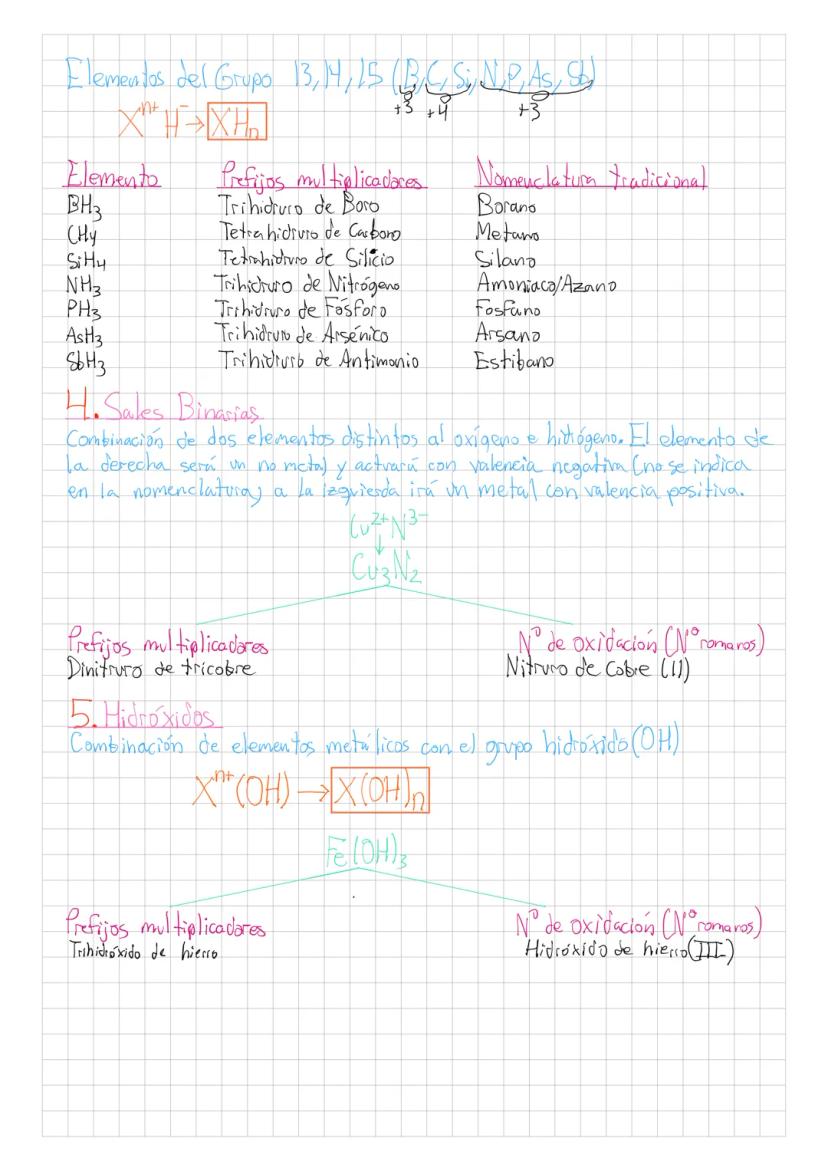 Elementos del Grupo 13,14,15 (B,C,Si,N,P,As,Sb)
+3 +4 +3
Xⁿ⁺H⁻→XHₙ
Elemento Prefijos multiplicadores Nomenclatura tradicional
BH₃ Trihidruro de Boro Borano
CH₄ Tetrahidruro de Carbono Metano
SiH₄ Tetrahidruro de Silicio Silano
NH₃ Trihidruro de Nitrógeno Amoniaco/Azano
PH₃ Trihidruro de Fósforo Fosfano
AsH₃ Trihidruro de Arsénico Arsano
SbH₃ Trihidruro de Antimonio Estibano
4. Sales Binarias
Combinación de dos elementos distintos al oxígeno e hidrógeno. El elemento de
la derecha será un no metal y actuará con valencia negativa (no se indica
en la nomenclatura) a la izquierda irá un metal con valencia positiva.
Cu²⁺N³⁻
↓
Cu₃N₂
Prefijos multiplicadores Nº de oxidación (Nº romanos)
Dinitruro de tricobre Nitruro de Cobre (II)
5. Hidróxidos
Combinación de elementos metálicos con el grupo hidróxido (OH)
Xⁿ⁺(OH)→X(OH)ₙ
Fe(OH)₃
Prefijos multiplicadores Nº de oxidación (Nº romanos)
Trihidróxido de hierro Hidróxido de hierro(III)